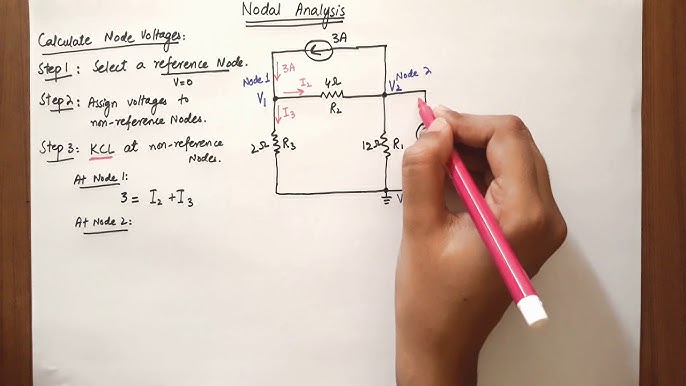 Nodal Analysis
Calculate Node Voltages:
Step 1: Select a reference Node.
V=0
Step 2: Assign voltages to
non-reference Nodes.
Step 3: KCL at non-reference
Nodes.
At Node 1:
3 = I₂ + I₃
At Node 2:
3A
3A
Node 1
V₁
I₂
4Ω
R₂
Node 2
V₂
I₃
2Ω
R₃
12Ω
R₁
V